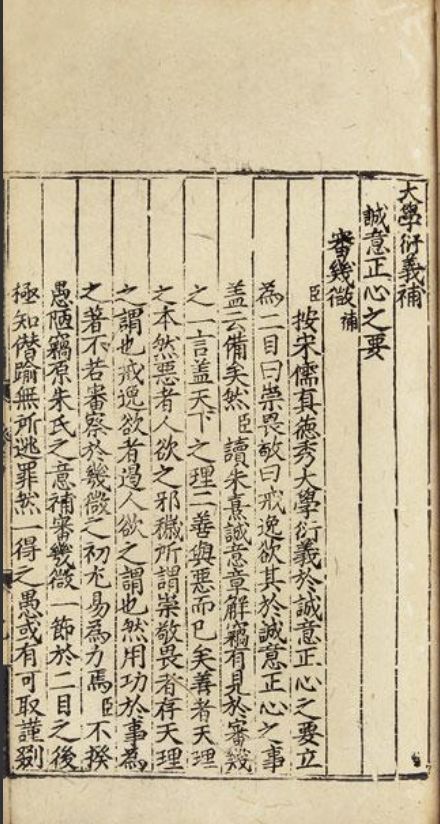 大學衍義補
誠意正心之要
審幾微補
臣按宋儒真德秀大學衍義於誠意正心之要立
為二目曰崇敬畏曰戒逸欲其於誠意正心之事
盖云備矣然臣讀朱熹誠意章解竊有見於審幾
之一言盖天下之理二善與惡而已矣善者天理
之本然惡者人欲之邪穢所謂崇敬畏者存天理
之謂也戒逸欲者遏人欲之謂也然用功於事為
之著不若審察於幾微之初尤易為力焉臣不揆
愚陋竊原朱氏之意補審幾微一節於二目之後
極知僭踰無所逃罪然一得之愚或有可取謹剟